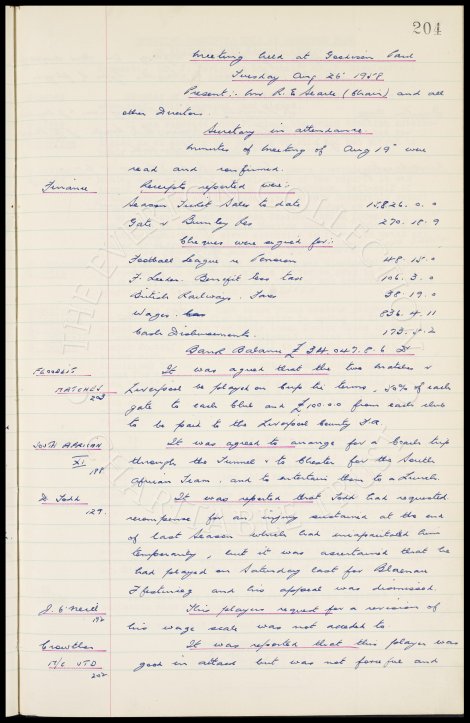 204
Meeting held at Goodison Park
Tuesday Aug 26 1958
Present:- Mr R. E Searle (Chair) and all
other Directors.
Secretary in attendance
Minutes of Meeting of Aug 19 were
read and confirmed.
Finance
Receipts reported were:-
Season Ticket Sales to date 15,826. 0. 0
Gate v Burnley Res 270. 18. 9
Cheques were signed for:-
Football League re Pension 48. 15. 0
F. Leeder. Benefit less tax 106. 3. 0
British Railways. Fares 38. 19. 0
Wages. 836. 4. 11
Cash Disbursements. 173. 5. 2
Bank Balance £ 34,047. 8. 6 Dr
Floodlit
Matches
203
It was agreed that the two matches v
Liverpool be played on Cup tie terms, 50% of each
gate to each Club and £100.0.0 from each club
to be paid to the Liverpool County F.A.
South African
XI
198
It was agreed to arrange for a Coach trip
through the Tunnel & to Chester for the South
African Team. and to entertain them to a Lunch.
D Todd
129.
It was reported that Todd had requested
recompense for an injury sustained at the end
of last Season which had incapacitated him
temporarily, but it was ascertained that he
had played on Saturday last for Blaenau
Ffestiniog and his appeal was dismissed.
J. O'Neill
This players request for a revision of
his wage scale was not acceded to
Crowther
M/C UTD
202
It was reported that this player was
good in attack but was not forceful and
THE EVERTON COLLECTION
CHARITABLE